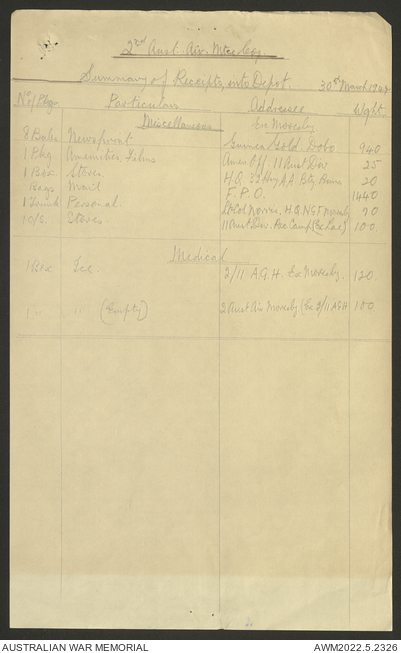 2nd Aust. Air. Mtce Coy.
Summary of Receipts into Depot. 30th March 1944
No/Pkgs Particulars Addresses Wght.
Miscellaneous Ex Moresby
8 Bales Newsprint Guinea Gold Dobo 940
1 Pkg Amenities Films Amen Off. 11 Aust Div 25
1 Box Stores H.Q. Hvy A.A. Bty 20
Bags Mail F.P.O. 1440
1 Trunk Personal Lt Col H.Q. N.G.F. Moresby 70
10/c. Stores 11 Aust Div. Rec Camp (Ex Lae) 100
Medical
1 Box Ice 2/11 A.G.H. Ex Moresby. 120
1 " " (Empty) 2 Aust Air Moresby (Ex 2/11 AGH 100
AUSTRALIAN WAR MEMORIAL AWM2022.5.2326